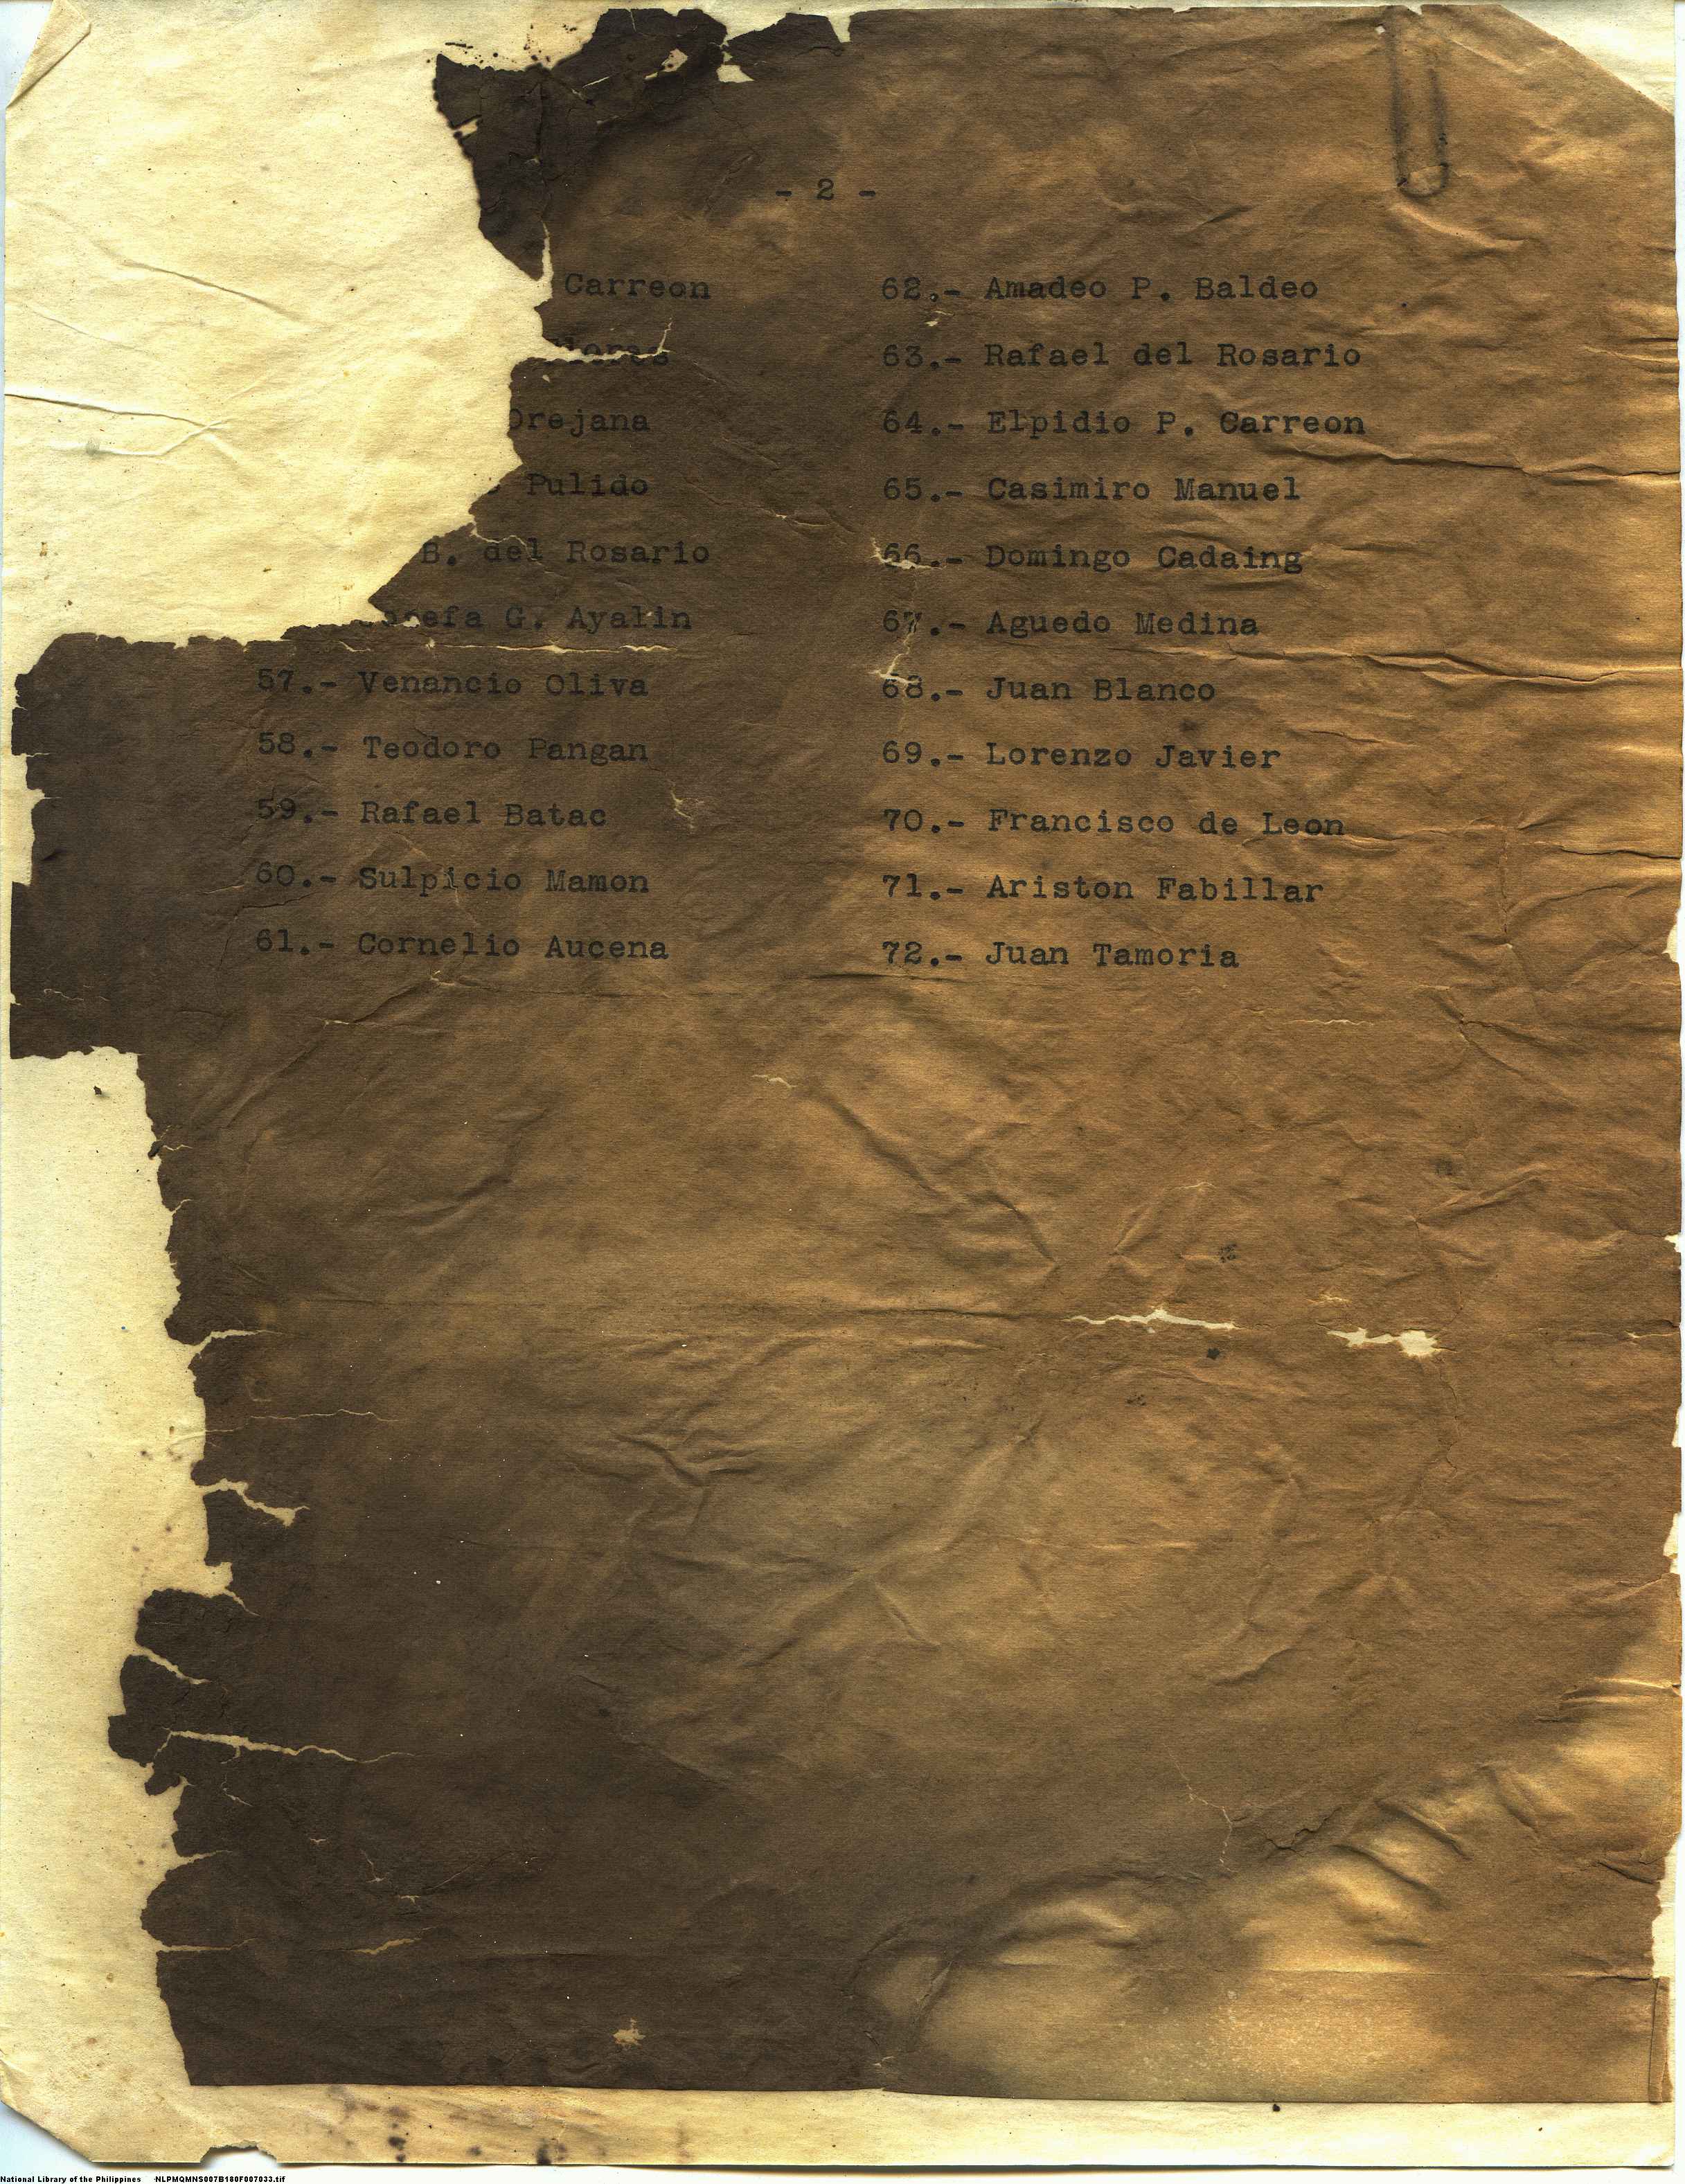 - 2 -
Carreon
Orejana
Pulido
B. del Rosario
G. Ayalin
57.- Venancio Oliva
58.- Teodoro Pangan
59.- Rafael Batac
60.- Sulpicio Mamon
61.- Cornelio Aucena
62.- Amadeo P. Baldeo
63.- Rafael del Rosario
64.- Elpidio P. Carreon
65.- Casimiro Manuel
66.- Domingo Cadaing
67.- Aguedo Medina
68.- Juan Blanco
69.- Lorenzo Javier
70.- Francisco de Leon
71.- Ariston Fabillar
72.- Juan Tamoria
National Library of the Philippines NLPMQMNS007B180F007033.tif